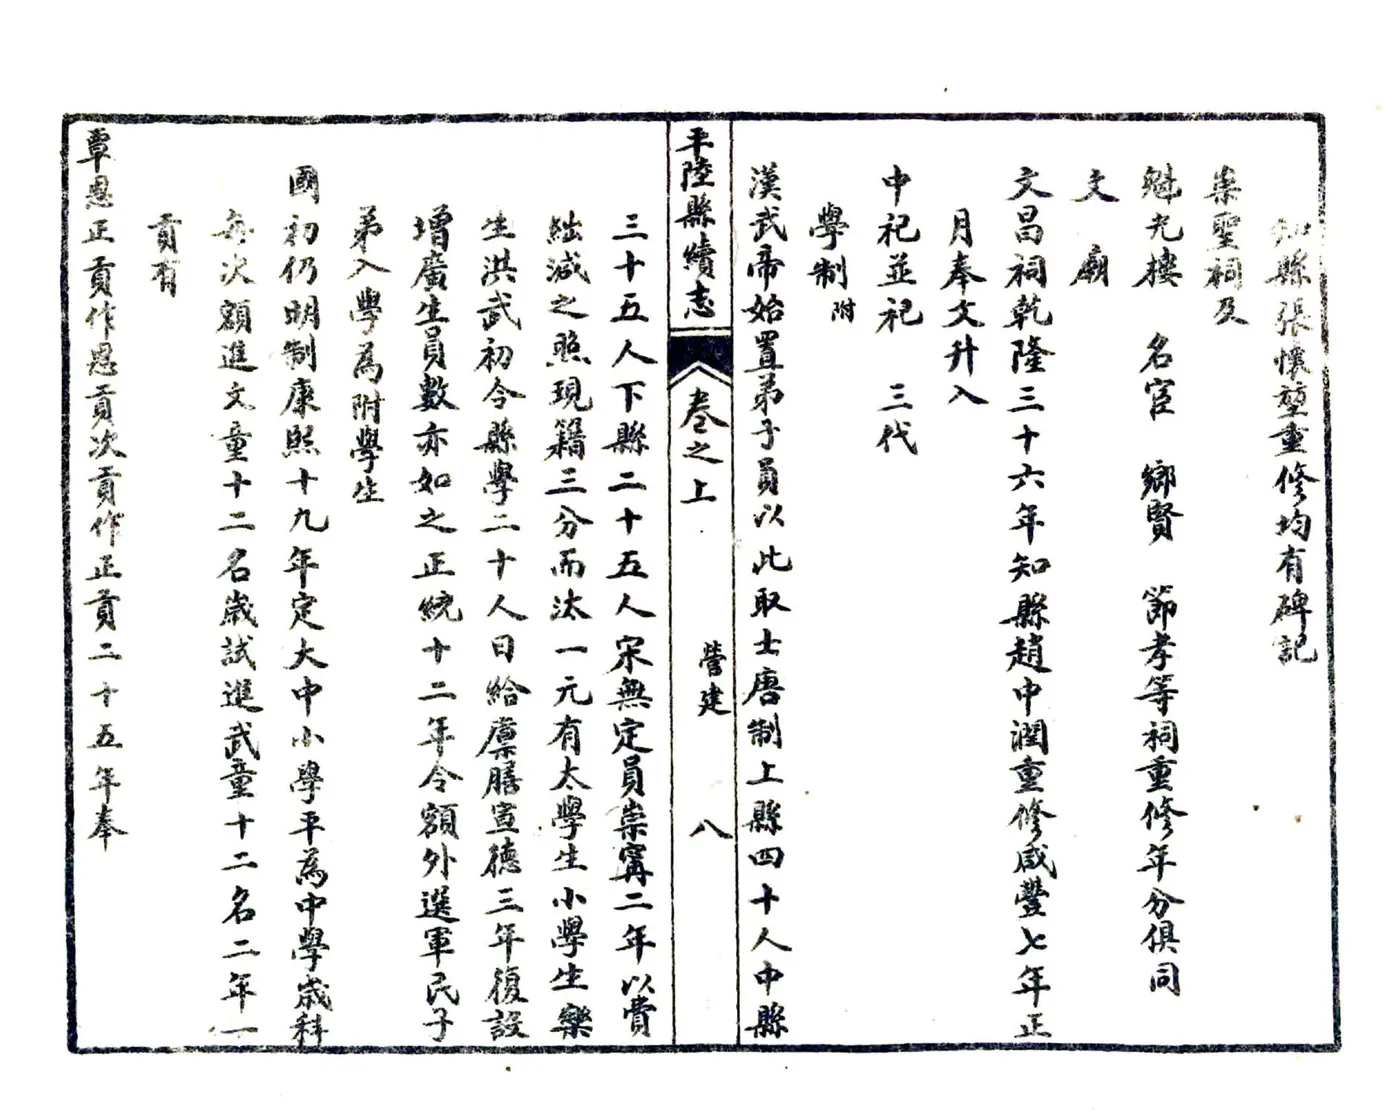 知縣張懷堃重修均有碑記
崇聖祠及
魁光樓 名宦 鄉賢 節孝等祠重修年分俱同
文廟
文昌祠乾隆三十六年知縣趙中潤重修咸豐七年正
月奉文升入
中祀並祀 三代
學制附
漢武帝始置弟子員以此取士唐制上縣四十人中縣
平陸縣續志
卷之上
營建
八
三十五人下縣二十五人宋無定員崇寧二年以費
絀減之照現籍三分而汰一元有太學生小學生樂
生洪武初令縣學二十人日給廩膳宣德三年復設
增廣生員數亦如之正統十二年令額外選軍民子
弟入學為附學生
國初仍明制康熙十九年定大中小學平為中學歲科
每次額進文童十二名歲試進武童十二名二年一
貢有
覃恩正貢作恩貢次貢作正貢二十五年奉